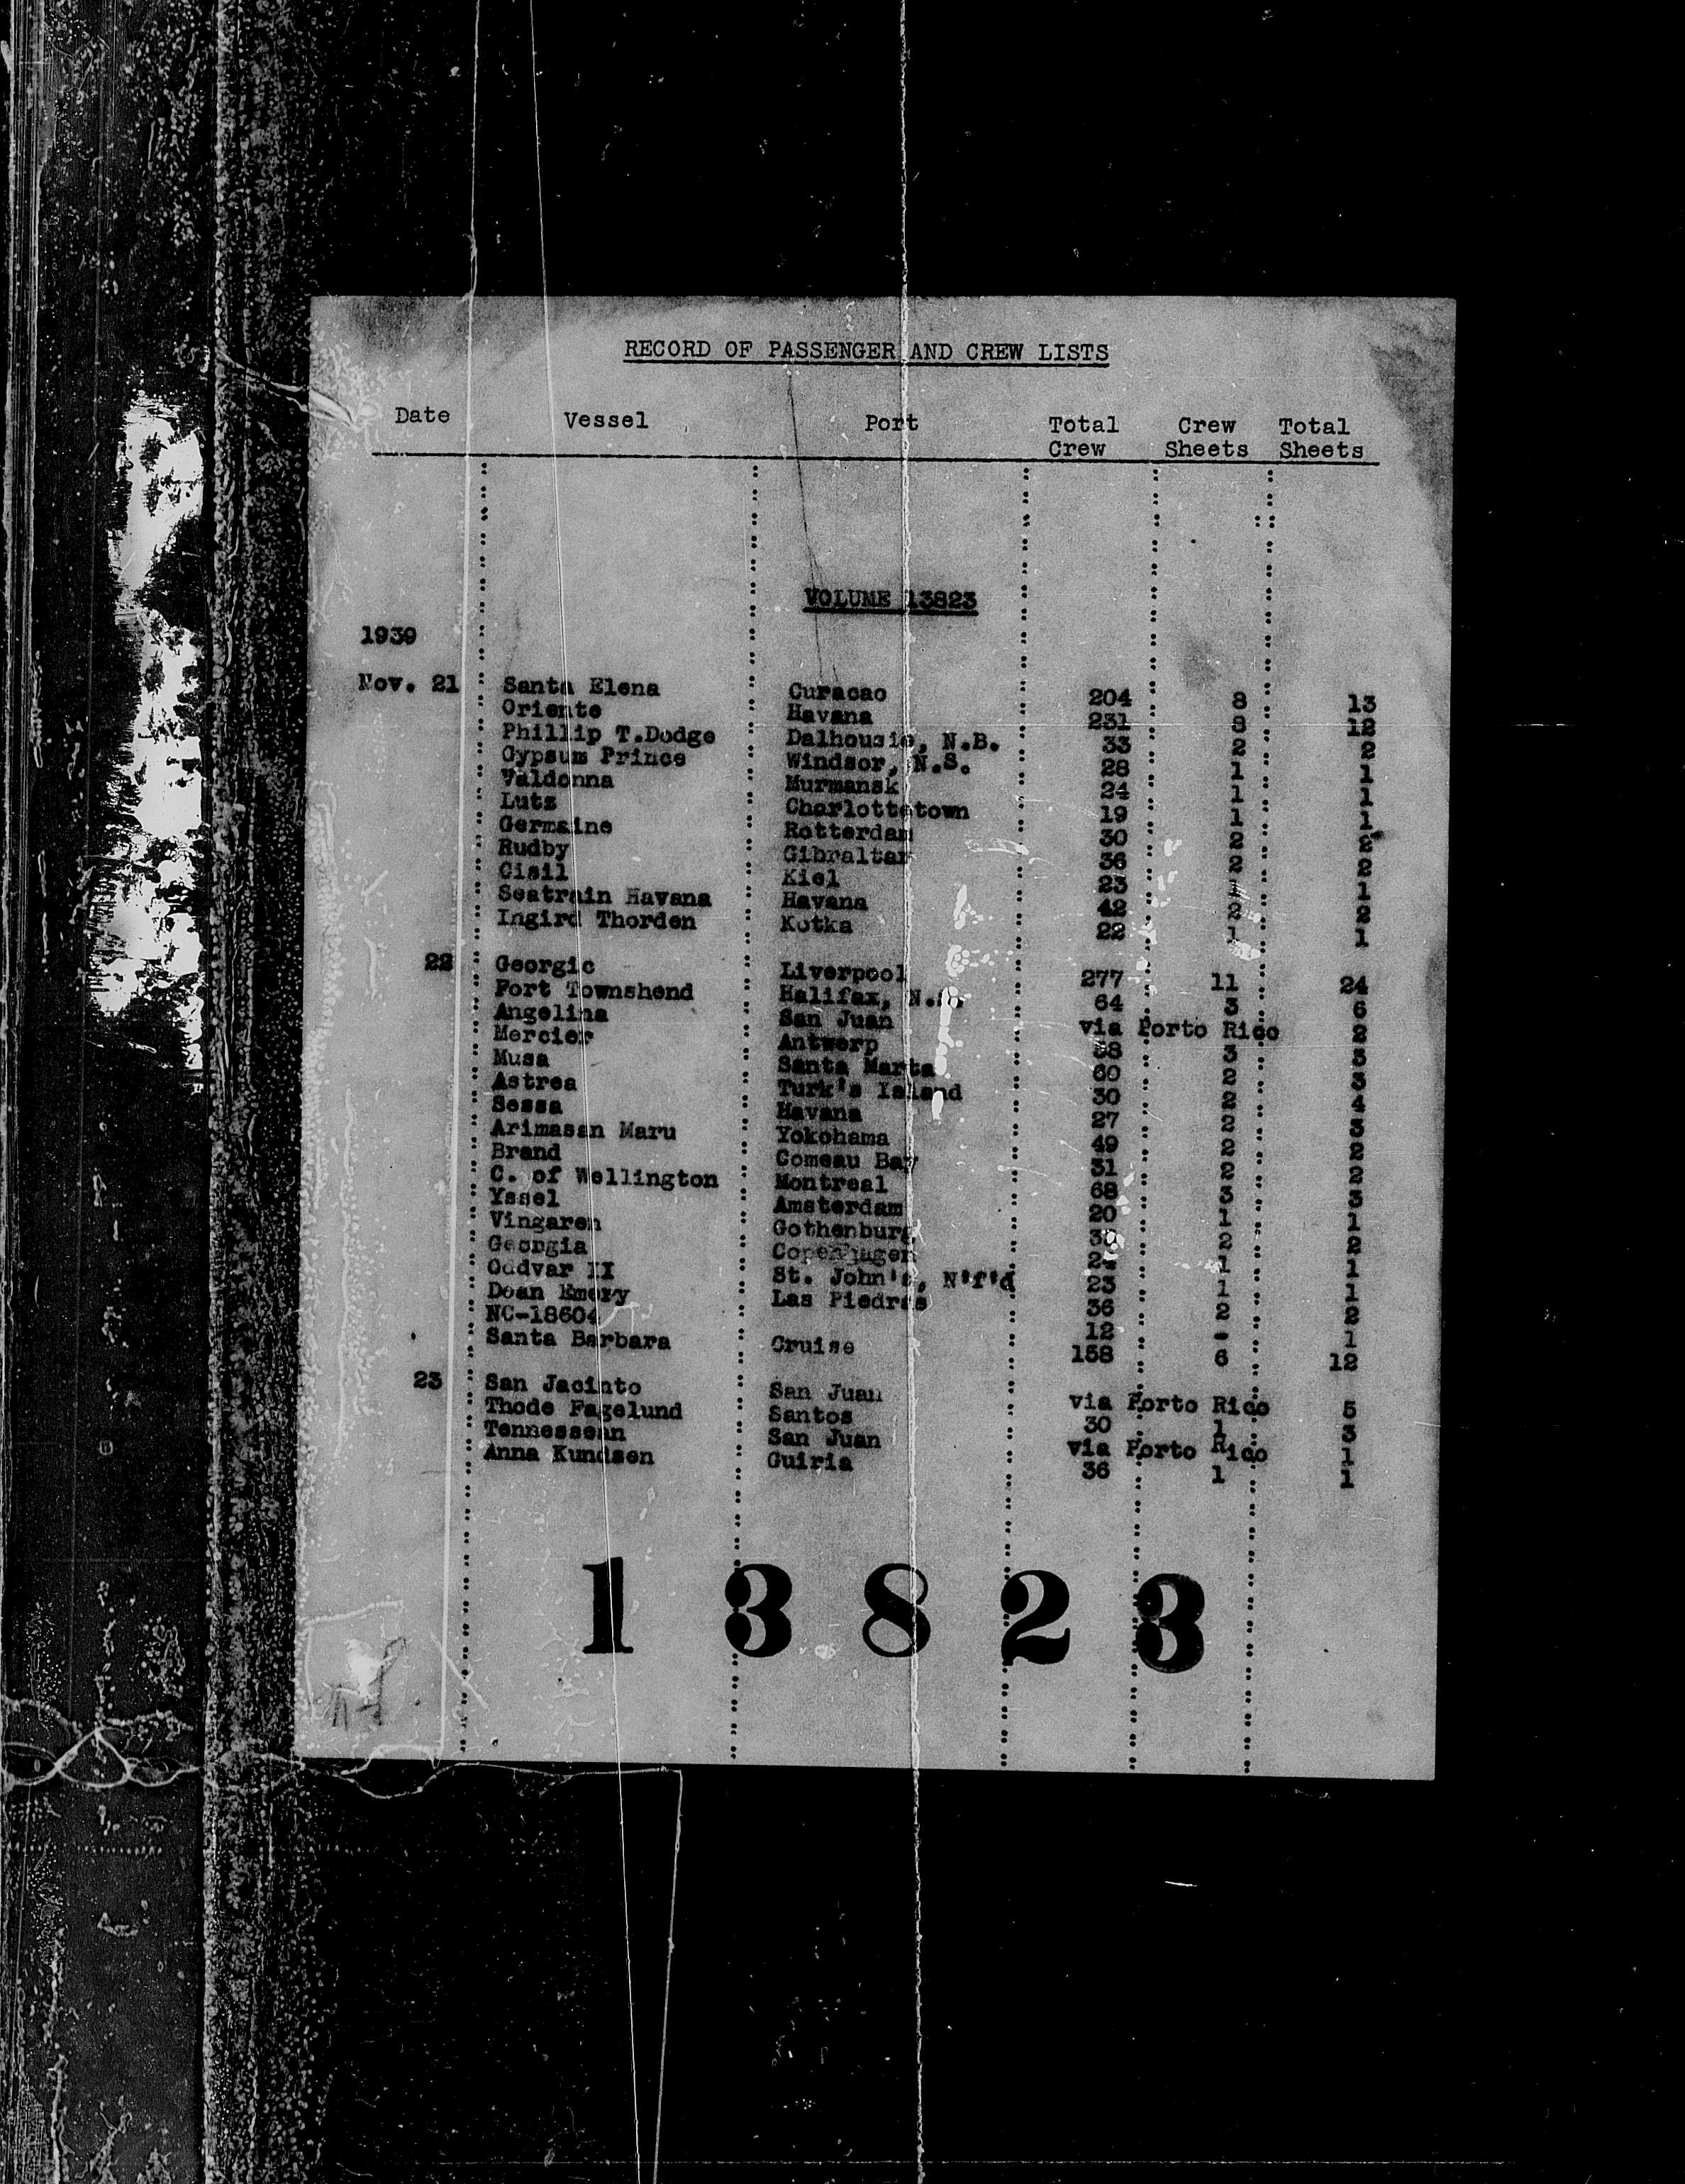 RECORD OF PASSENGER AND CREW LISTS
Date Vessel Port Total Crew Crew Sheets Total Sheets
VOLUME 13823
1939
Nov. 21 Santa Elena Curacao 204 8 13
Oriente Havana 231 8 12
Phillip T.Dodge Dalhousie, N.B. 33 2 2
Gypsum Prince Windsor, N.S. 28 1 1
Valdonna Murmansk 24 1 1
Lutz Charlottetown 19 1 1
Germaine Rotterdam 30 2 2
Rudby Gibraltar 36 2 2
Cisil Kiel 23 1 1
Seatrain Havana Havana 42 2 2
Ingird Thorden Kotka 22 1 1
22 Georgic Liverpool 277 11 24
Fort Townshend Halifax, N. 64 3 6
Angelina San Juan via Porto Rico 2
Mercier Antwerp 3
Musa Santa Marta 60 2 3
Astrea Turk's Island 30 2 4
Sessa Havana 27 2 3
Arimasan Maru Yokohama 49 2 2
Brand Comeau Bay 31 2 2
C. of Wellington Montreal 68 3 3
Yssel Amsterdam 20 1 1
Vingaren Gothenburg 2 2
Georgia Copenhagen 1 1
Oddvar II St. John's, N'f'd 23 1 1
Doan Emery Las Piedras 36 2 2
NC-18604 12 - 1
Santa Barbara Cruise 158 6 12
23 San Jacinto San Juan via Porto Rico 5
Thode Fagelund Santos 30 1 3
Tennessean San Juan via Porto Rico 1
Anna Kundsen Guiria 36 1 1
13823